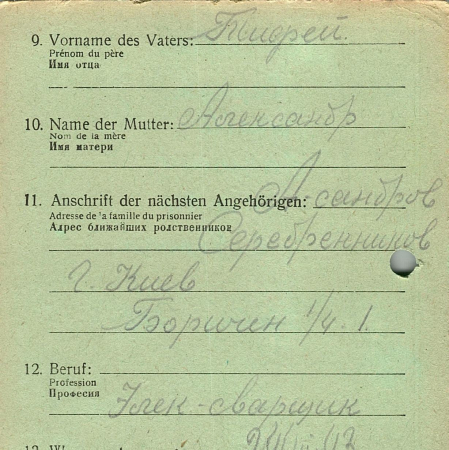 9. Vorname des Vaters: Тифрей.
Prénom du père
Имя отца
10. Name der Mutter: Александр
Nom de la mère
Имя матери
11. Anschrift der nächsten Angehörigen: А-сандров
Adresse de la famille du prisonnier
Адрес ближайших родственников Серебренников
г. Киев
Боричин 1/4. 1.
12. Beruf:
Profession
Професия
Элек-сварщик